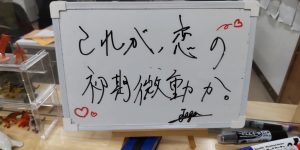 これが、恋の
初期微動か。